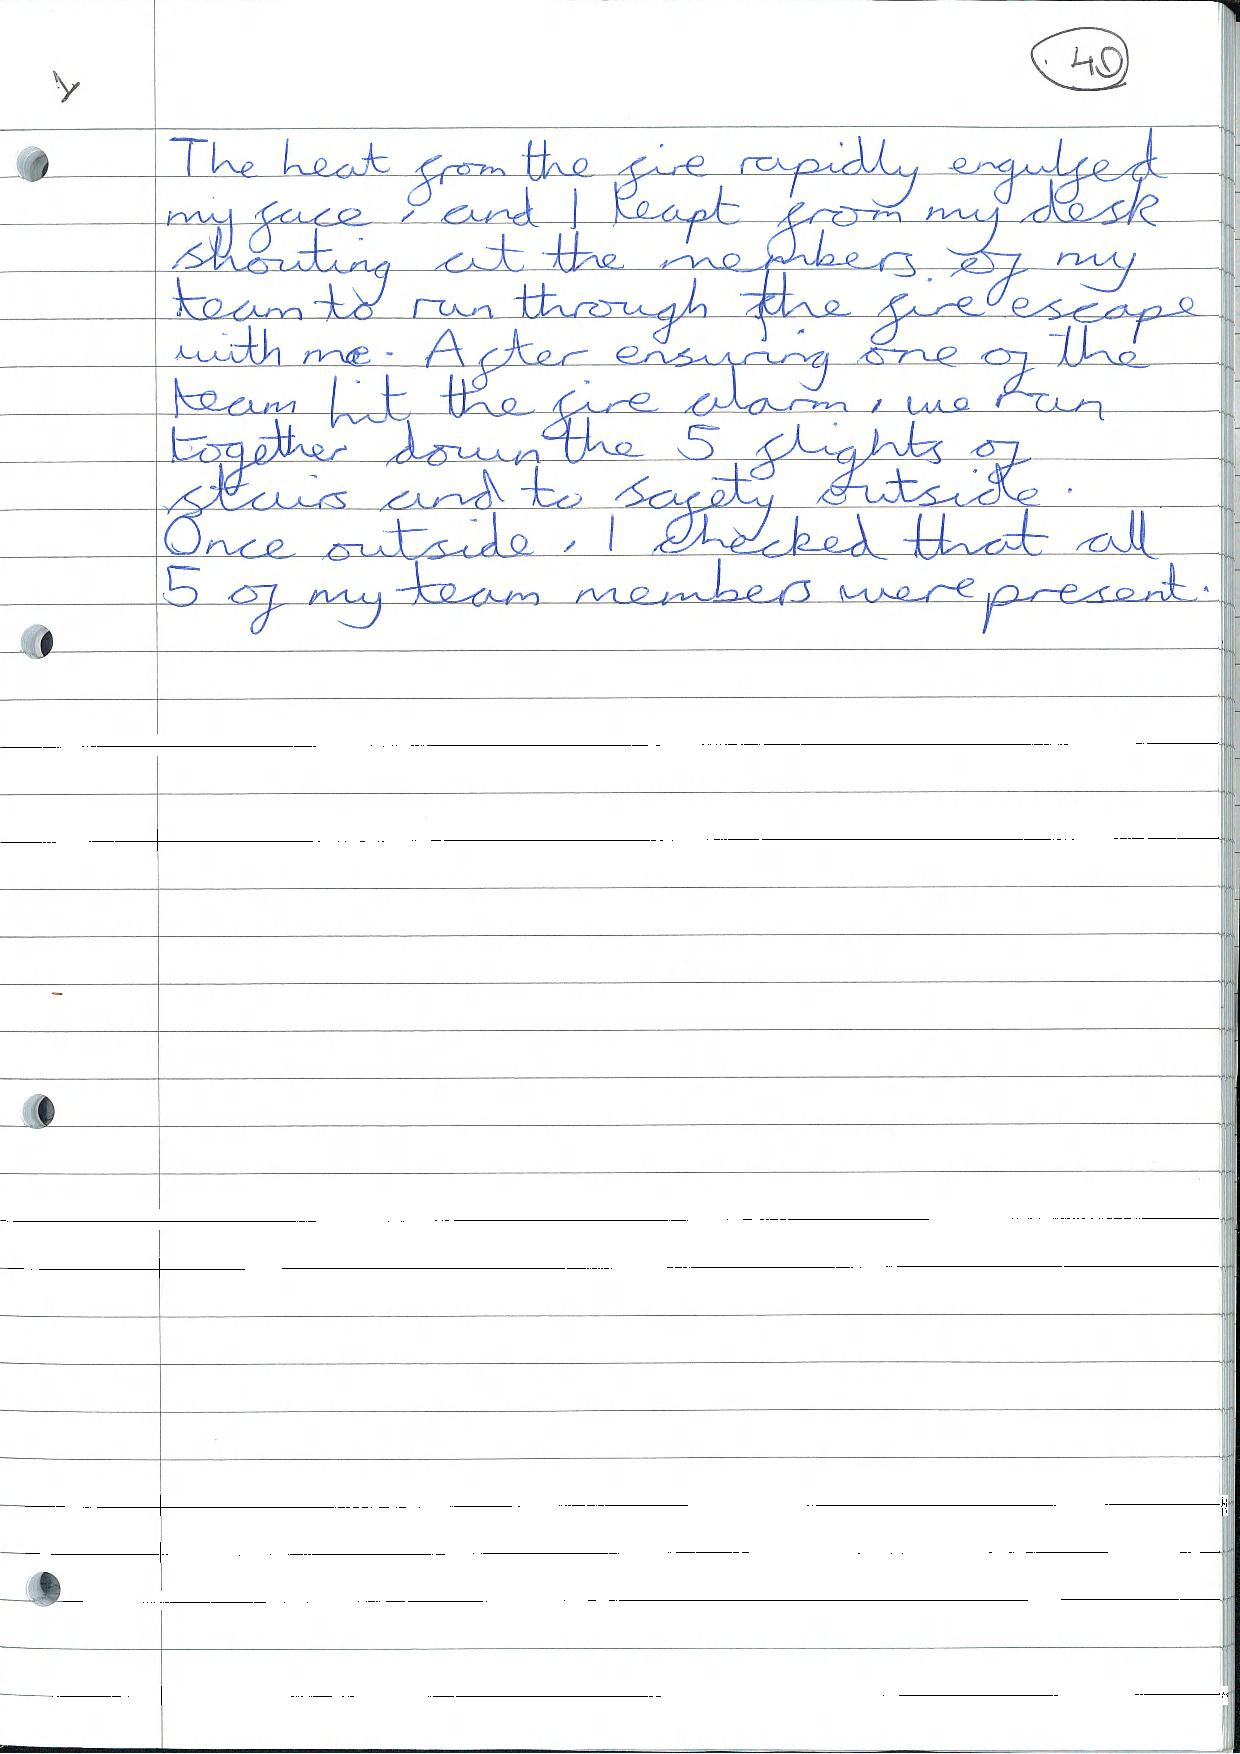 40
y
The heat from the fire rapidly engulfed
my face, and I leapt from my desk
shouting at the members of my
team to run through the fire escape
with me. After ensuring one of the
team hit the fire alarm, we ran
together down the 5 flights of
stairs and to safety outside.
Once outside, I checked that all
5 of my team members were present.